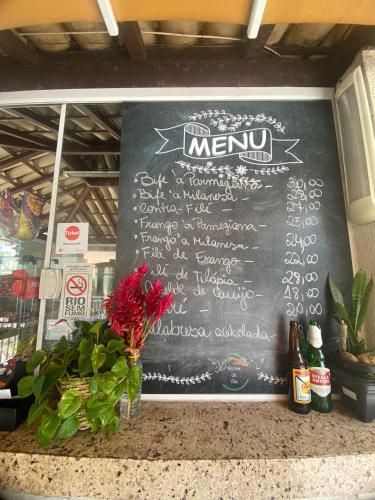 MENU
Bife à Parmegiana - 30,00
Bife à Milanesa - 28,00
Contra-Filé - 27,00
Frango à Parmegiana - 25,00
Frango à Milanesa - 24,00
Filé de Frango - 22,00
Filé de Tilápia - 29,00
de Queijo - 18,00
Calabresa acebolada - 20,00
Ticket
RIO
SEM
FUMO
STELLA
ARTOIS